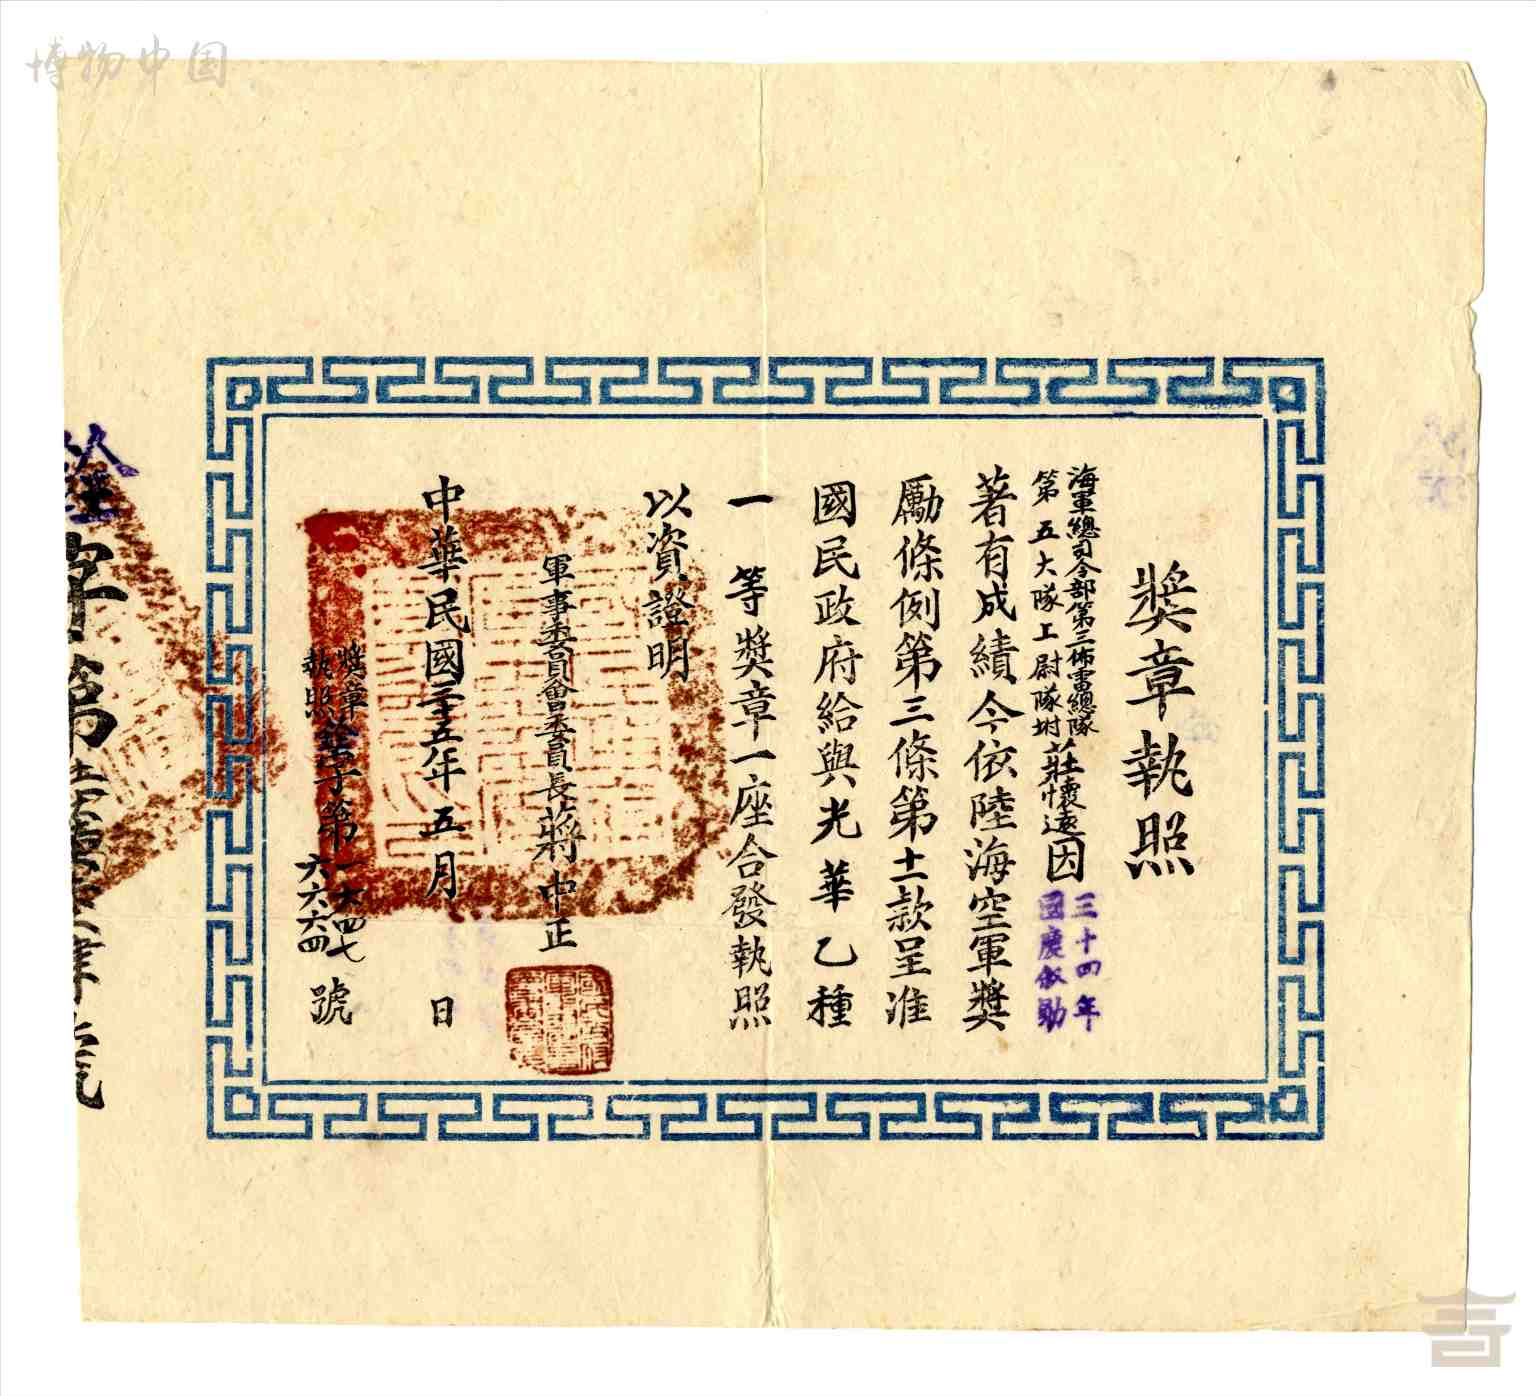 博物中国
獎章執照
海軍總司令部第三佈雷總隊
第五大隊上尉隊坿莊懷遠因
三十四年
國慶敘勛
著有成績今依陸海空軍獎
勵條例第三條第十一款呈准
國民政府給與光華乙種
一等獎章一座合發執照
以資證明
軍事委員會委員長蔣中正
中華民國三十五年五月 日
獎章
執照 字第
一六四七
六六六四
號
字第